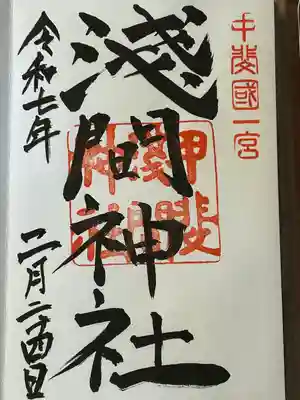 甲斐國一宮
淺間神社
甲斐
神社
令和七年
二月二十四日